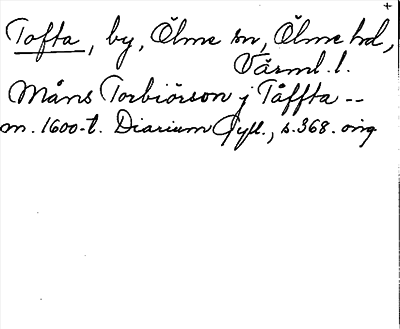 +
Tofta, by, Ölme sn, Ölme hd,
Värml. l.
Måns Torbiörson j Tåffta --
m. 1600-t. Diarium Gyll., s. 368. orig